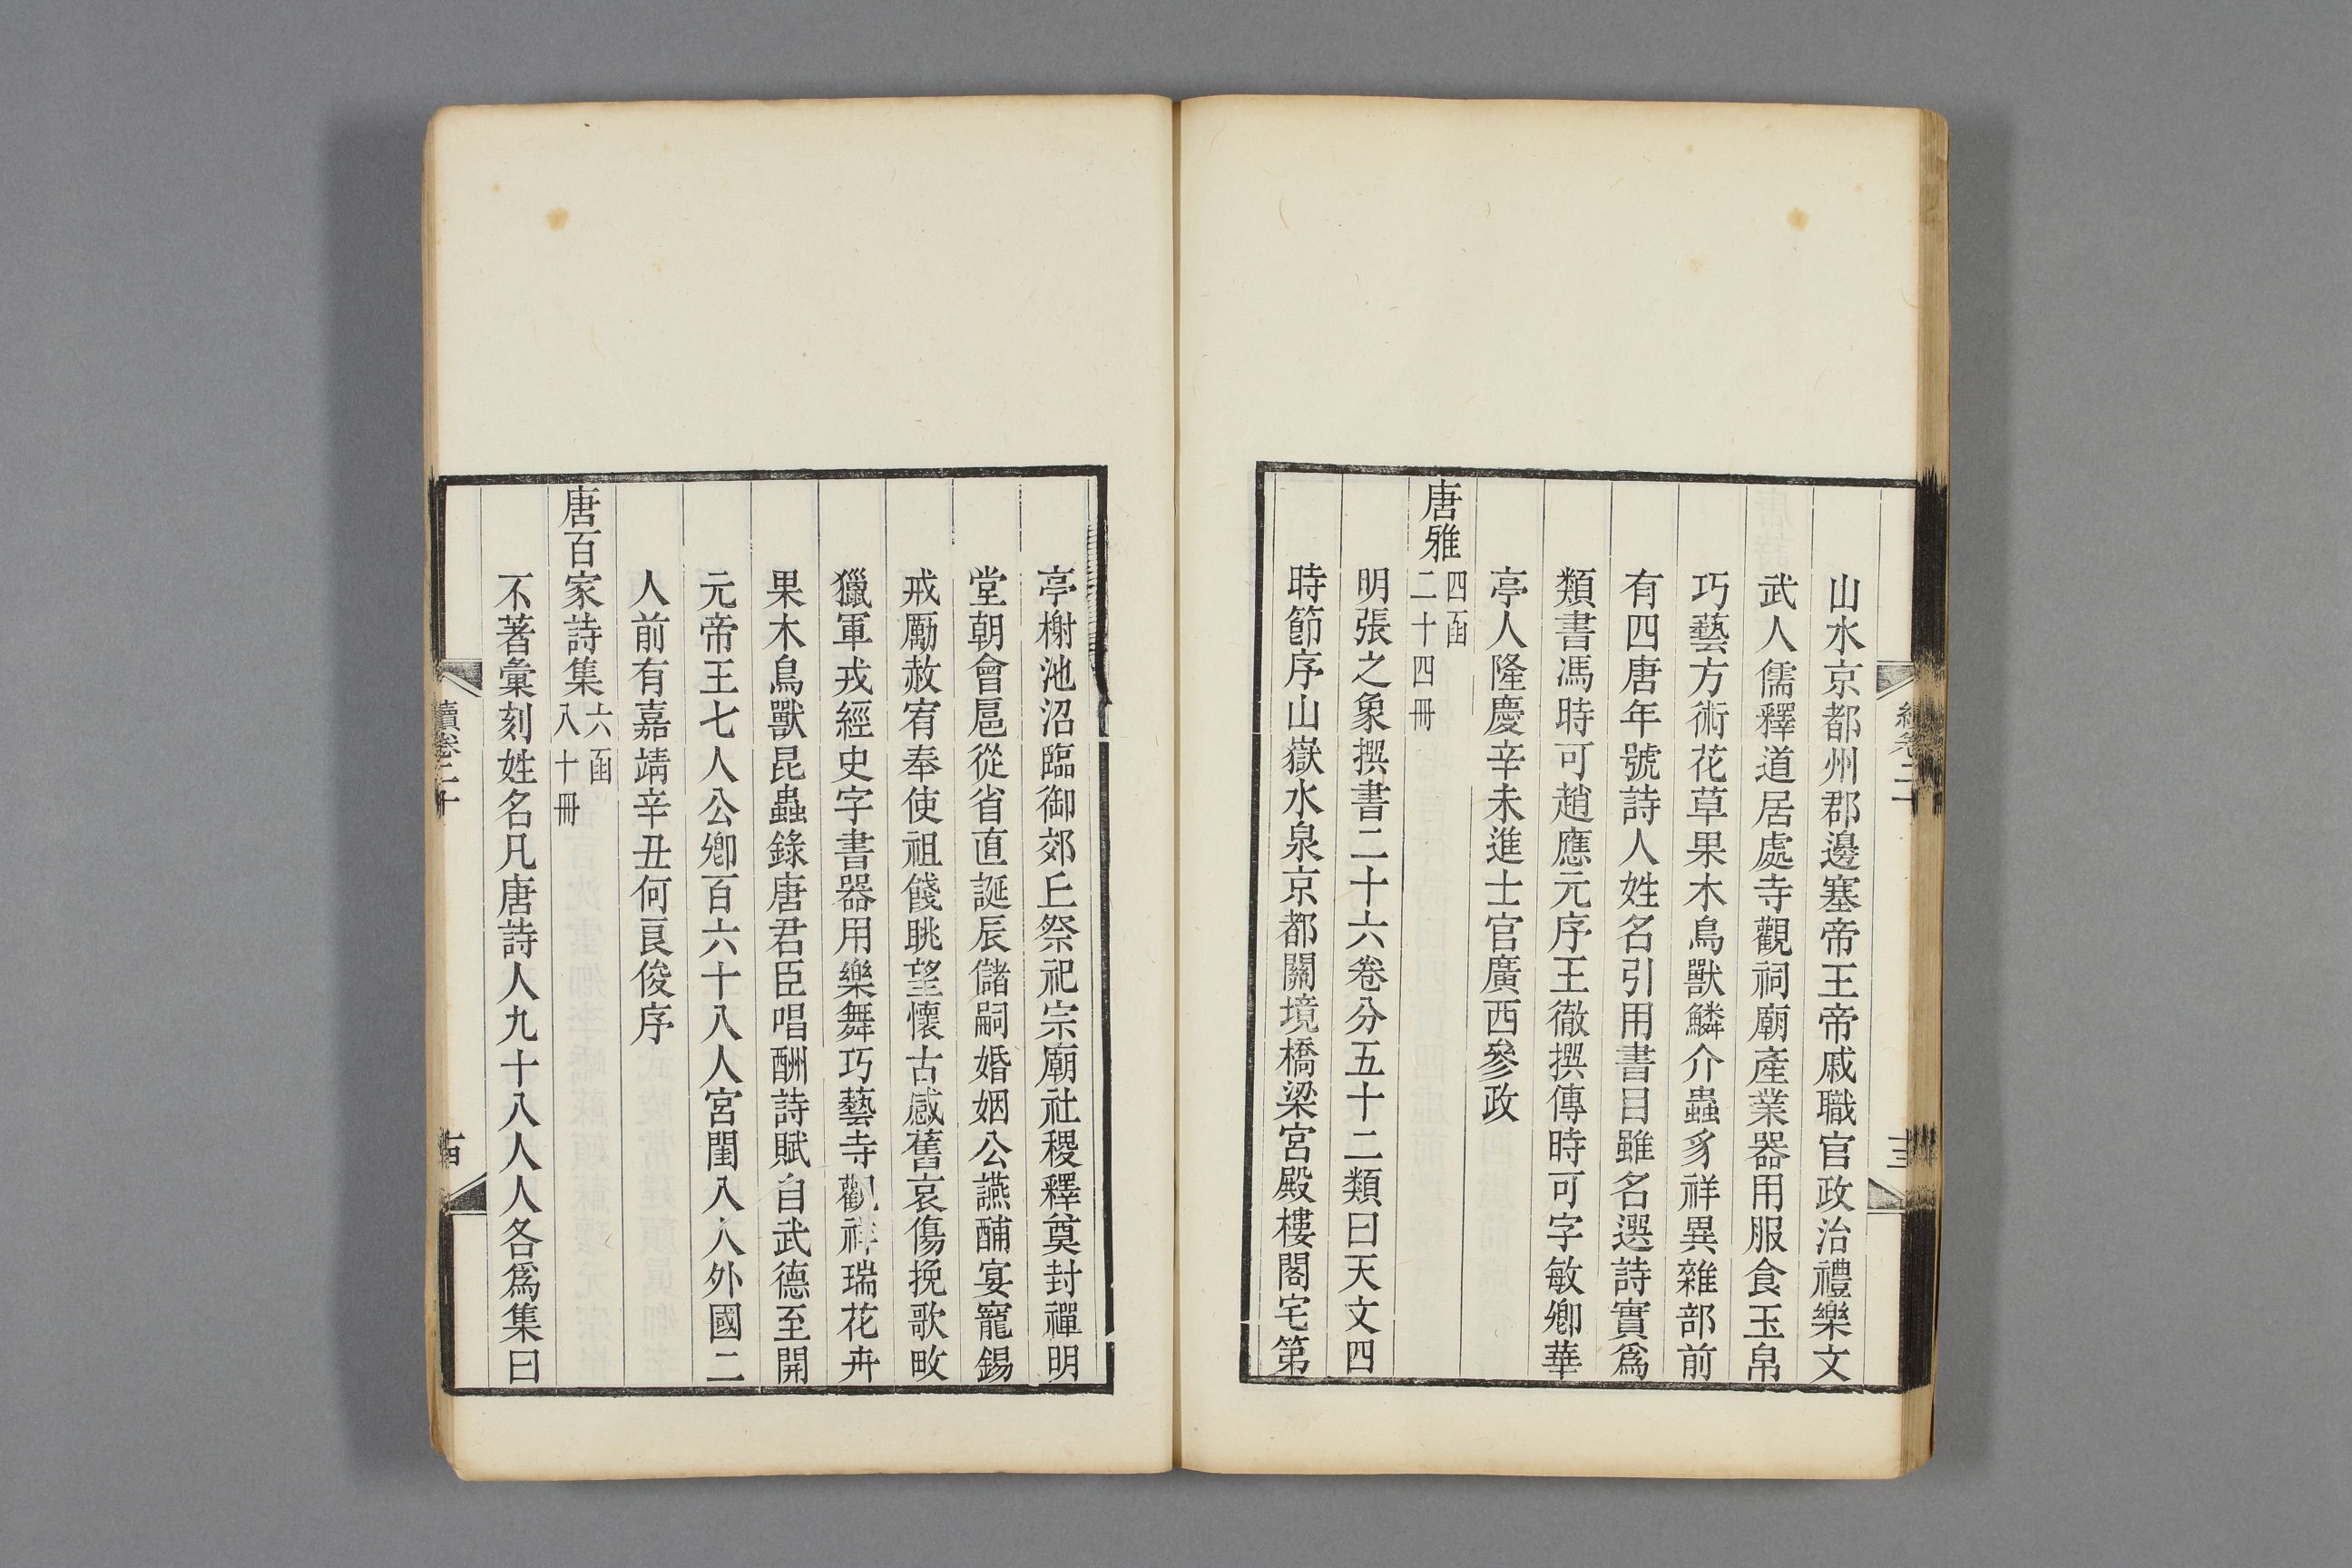 山水京都州郡邊塞帝王帝戚職官政治禮樂文
武人儒釋道居處寺觀祠廟產業器用服食玉帛
巧藝方術花草果木鳥獸鱗介蟲豸祥異雜部前
有四唐年號詩人姓名引用書目雖名選詩實爲
類書馮時可趙應元序王徹撰傳時可字敏卿華
亭人隆慶辛未進士官廣西參政
唐雅四函二十四冊
明張之象撰書二十六卷分五十二類曰天文四
時節序山嶽水泉京都關境橋梁宮殿樓閣宅第
亭榭池沼臨御郊丘祭祀宗廟社稷釋奠封禪明
堂朝會扈從省直誕辰儲嗣婚姻公讌酺宴寵錫
戒勵赦宥奉使祖餞眺望懷古感舊哀傷挽歌畋
獵軍戎經史字書器用樂舞巧藝寺觀祥瑞花卉
果木鳥獸昆蟲錄唐君臣唱酬詩賦自武德至開
元帝王七人公卿百六十八人宮閨八人外國二
人前有嘉靖辛丑何良俊序
唐百家詩集六函八十冊
不著彙刻姓名凡唐詩人九十八人人各爲集曰
續卷二十
十四